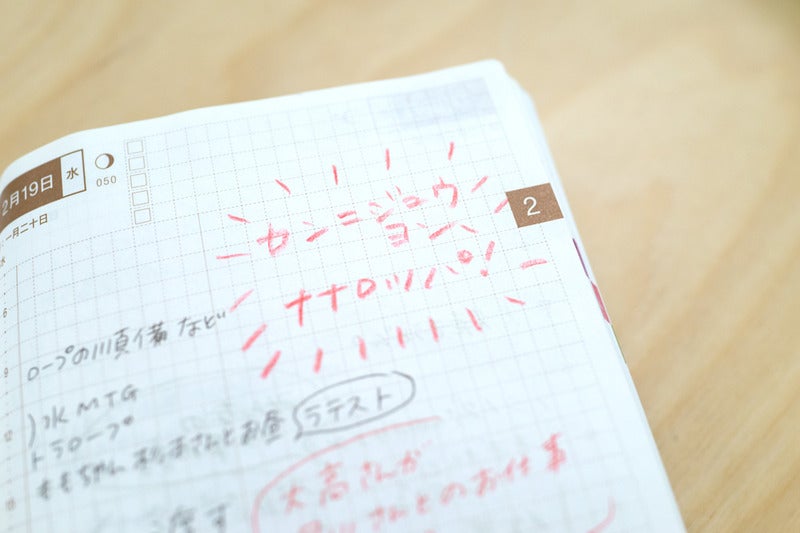 2月19日 水
050
一月二十日
2
センニジュウ
ヨンヘ
ナナロッパ!
6
9
ロープの順備 など
水 MTG
12
トラロープ
ももちゃん さんとお昼 ラテスト
15
渡す
大高さんが
さんとのお仕事